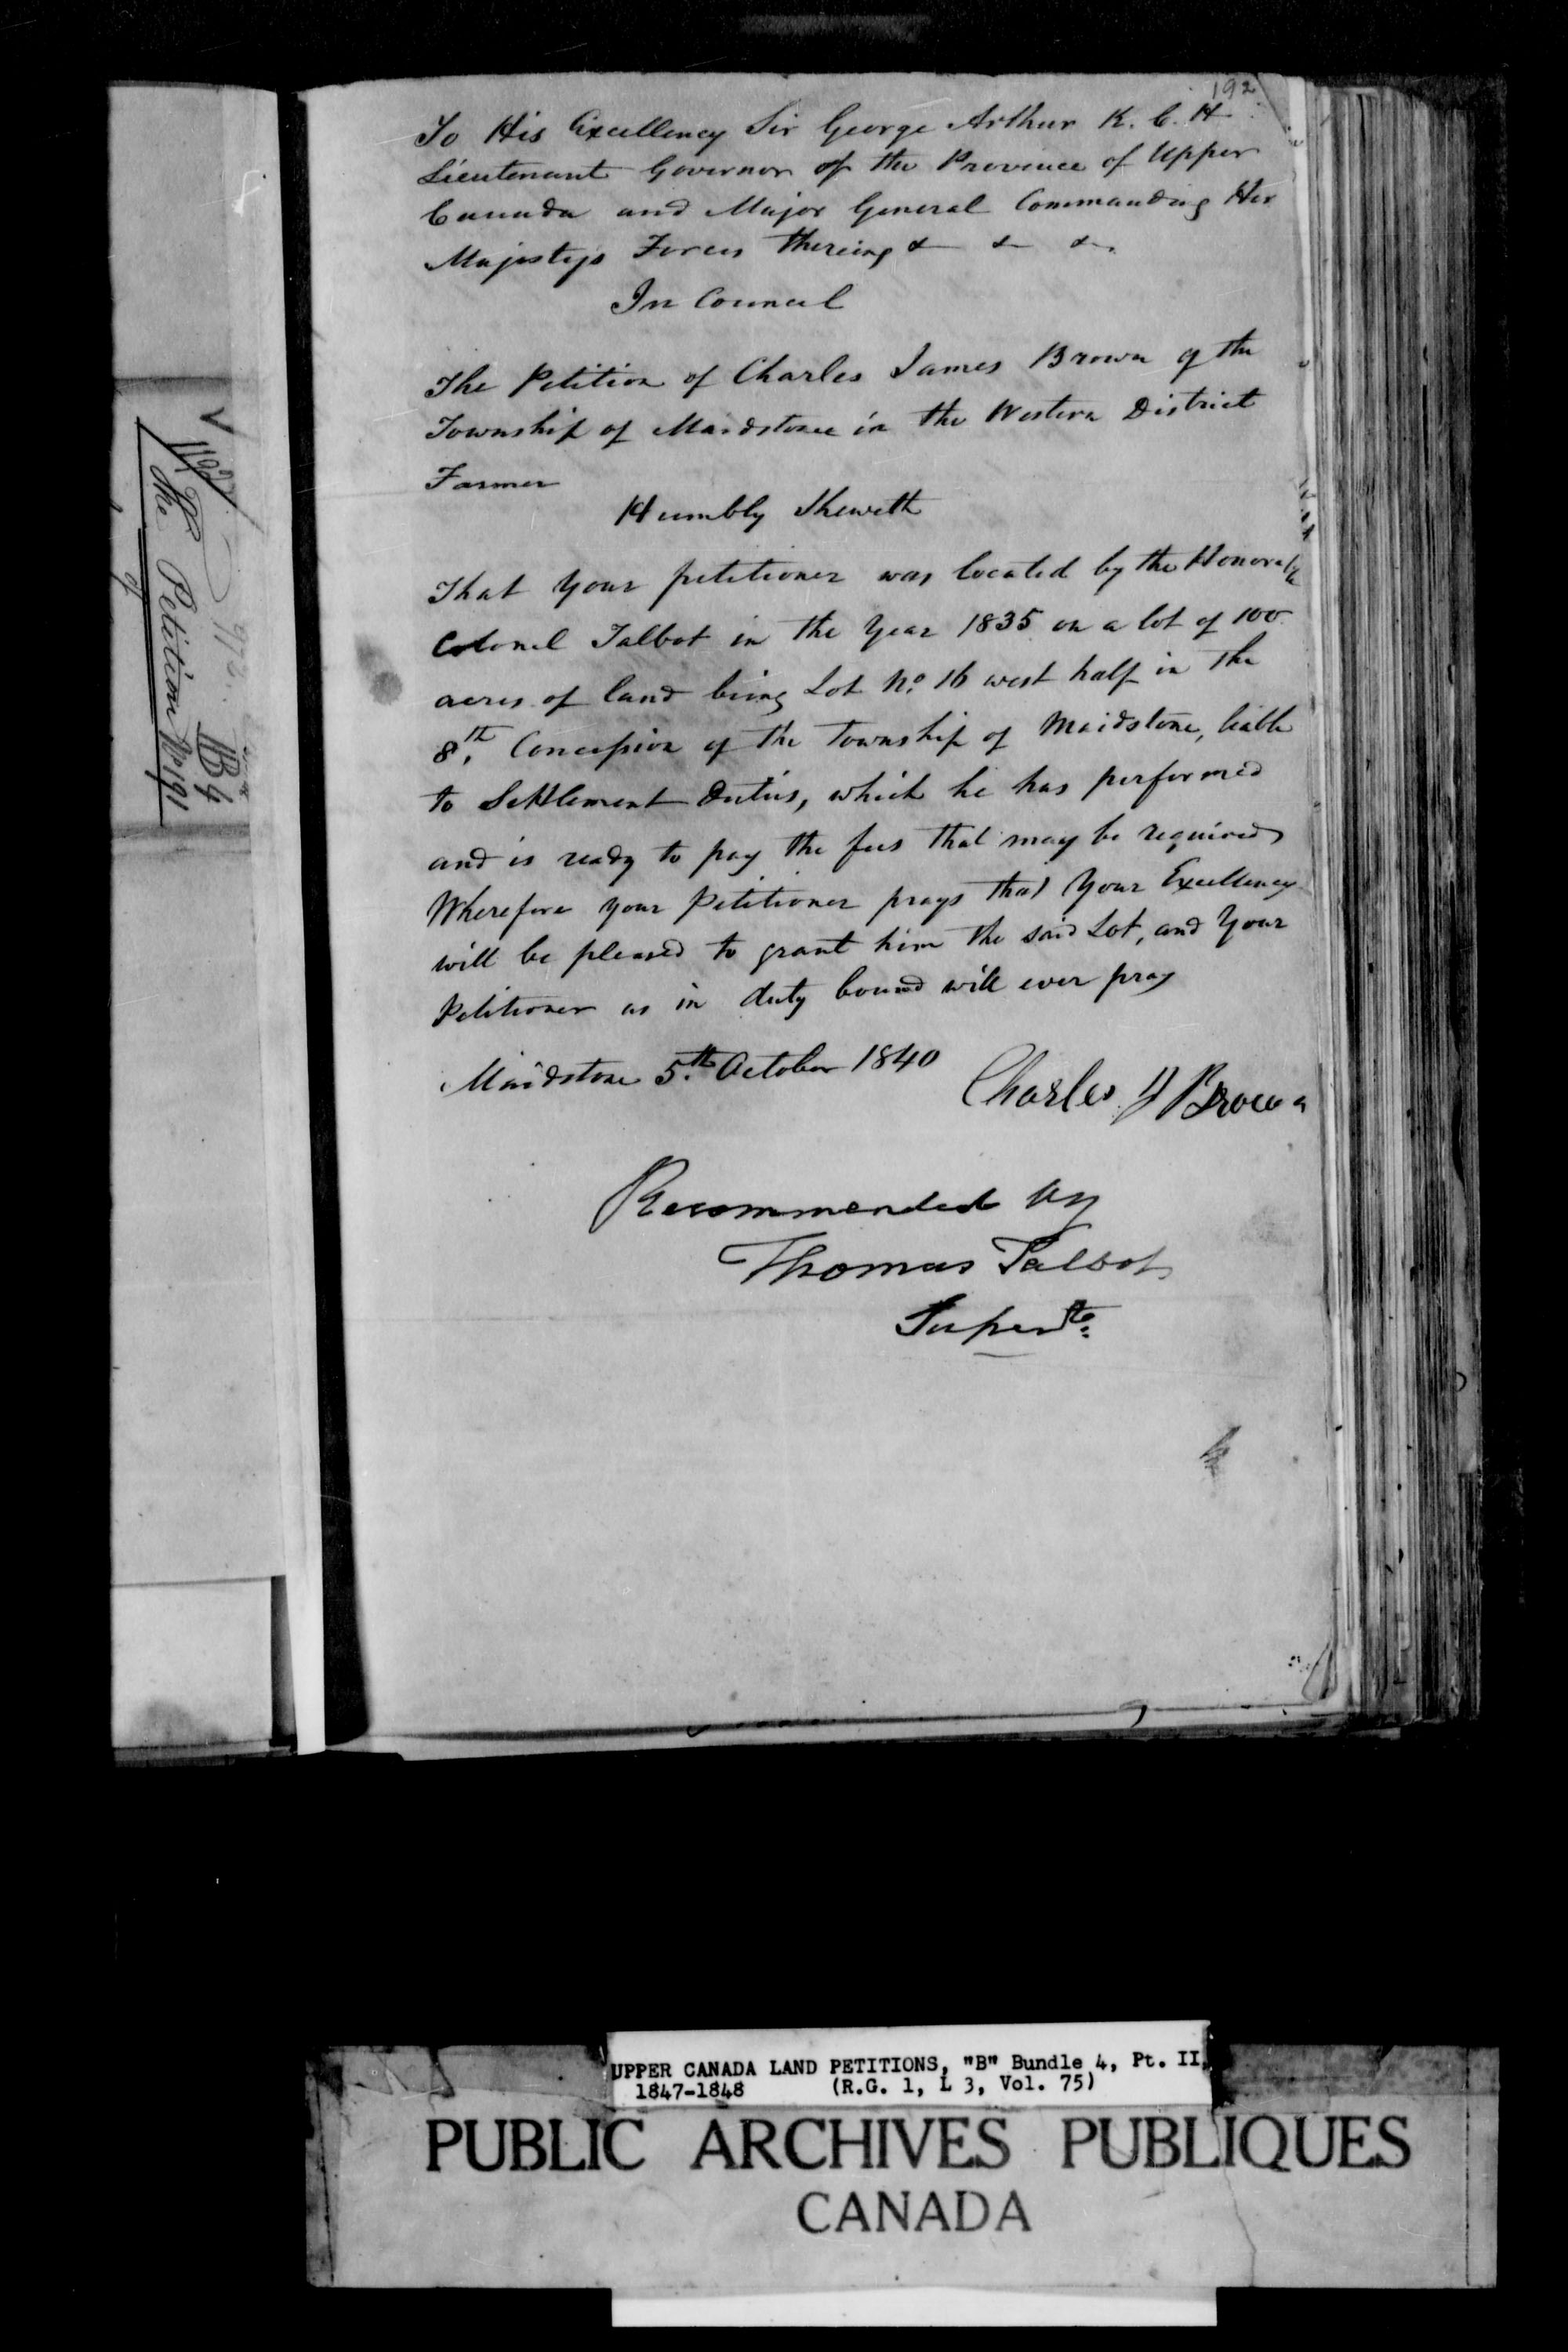 192
To His Excellency Sir George Arthur K. C. H
Lieutenant Governor of the Province of Upper
Canada and Major General Commanding Her
Majestys Forces therein & & &.
In Council
The Petition of Charles James Brown of the
Township of Maidstone in the Western District
Farmer
Humbly Sheweth
That your petitioner was located by the Honorable
Colonel Talbot in the Year 1835 on a lot of 100
acres of land being Lot No. 16 west half in the
8th. Concession of the Township of Maidstone, liable
to Settlement duties, which he has performed
and is ready to pay the fees that may be required
Wherefore your Petitioner prays that Your Excellency
will be pleased to grant him the said Lot, and Your
Petitioner as in duty bound will ever pray
Maidstone 5th. October 1840
Charles J Brown
Recommended by
Thomas Talbot
Superte.
B 4
The Petition No 191
of
UPPER CANADA LAND PETITIONS, "B" Bundle 4, Pt. II,
1847-1848 (R.G. 1, L 3, Vol. 75)
PUBLIC ARCHIVES PUBLIQUES
CANADA